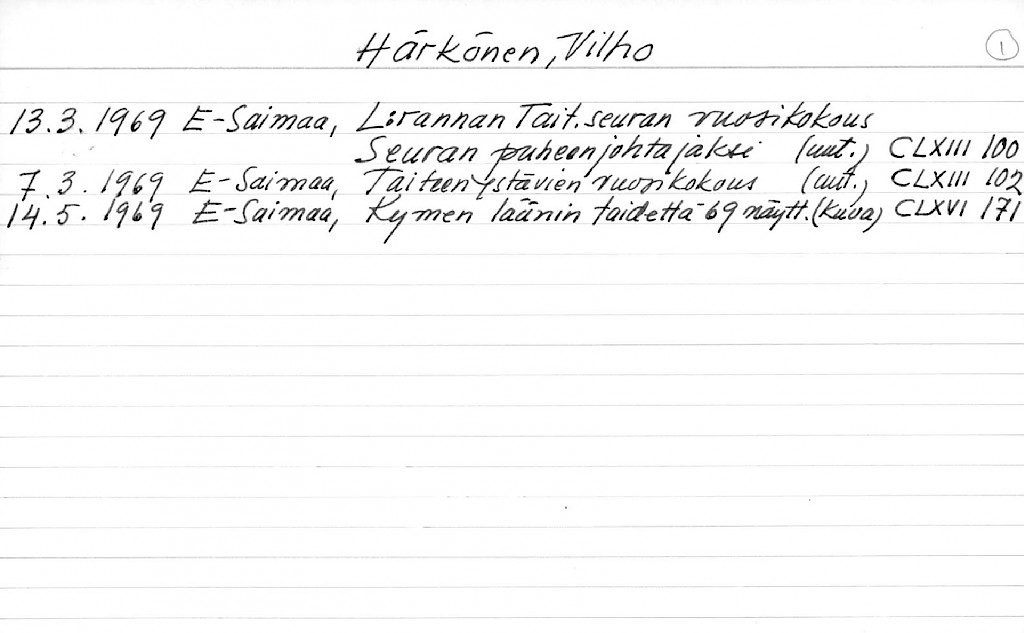 Härkönen, Vilho 1
13.3.1969 E-Saimaa, L:rannan Tait.seuran vuosikokous
Seuran puheenjohtajaksi (uut.) CLXIII 100
7.3.1969 E-Saimaa, Taiteenystävien vuosikokous (uut.) CLXIII 102
14.5.1969 E-Saimaa, Kymen läänin taidetta-69 näytt. (kuva) CLXVI 171